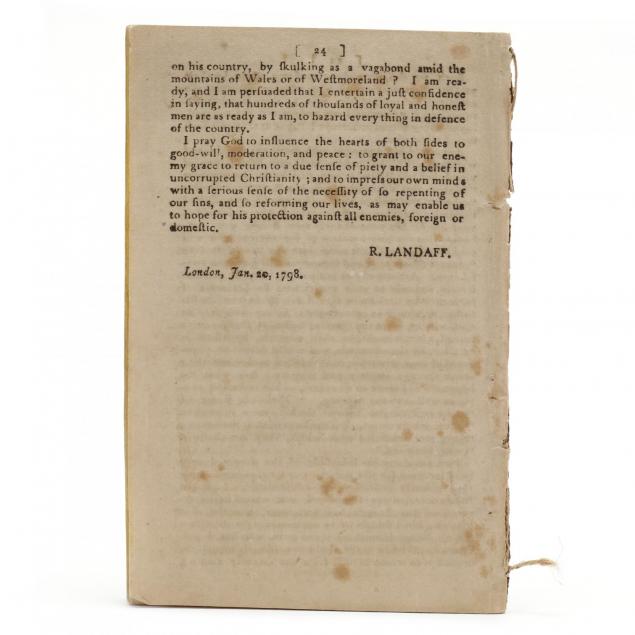 [ 24 ]
on his country, by ſkulking as a vagabond amid the
mountains of Wales or of Weſtmoreland ? I am rea-
dy, and I am perſuaded that I entertain a juſt confidence
in ſaying, that hundreds of thouſands of loyal and honeſt
men are as ready as I am, to hazard every thing in defence
of the country.
I pray God to influence the hearts of both ſides to
good-will, moderation, and peace : to grant to our ene-
my grace to return to a due ſenſe of piety and a belief in
uncorrupted Chriſtianity ; and to impreſs our own minds
with a ſerious ſenſe of the neceſſity of ſo repenting of
our ſins, and ſo reforming our lives, as may enable us
to hope for his protection againſt all enemies, foreign or
domeſtic.
R. LANDAFF.
London, Jan. 20, 1798.